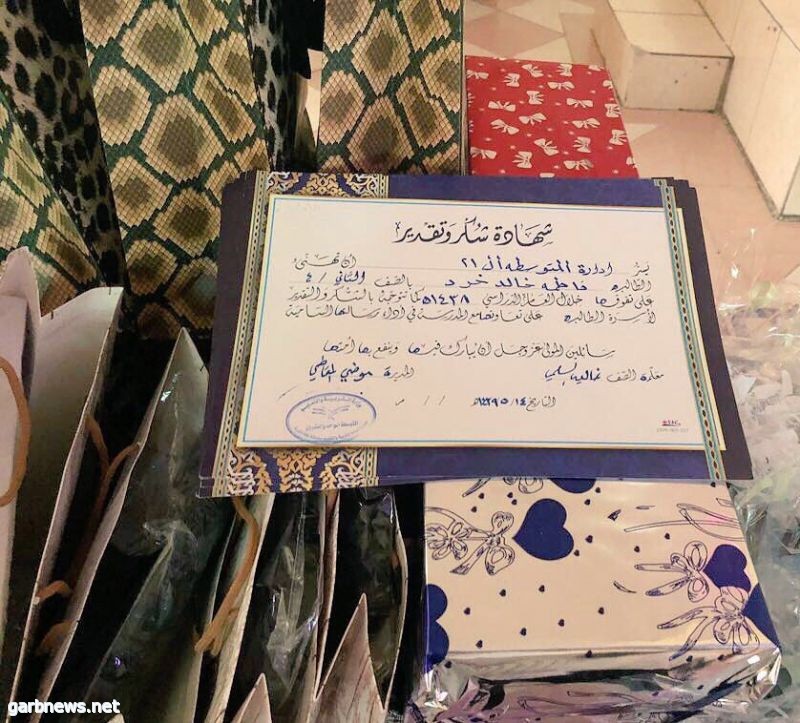 شهادة شكر وتقدير
إدارة المتوسطة ال ٢١ أن تهنئ
الطالبة فاطمه خالد خرد بالصف الثاني / ٤
على تفوقها خلال العام الدراسي ١٤٣٨ كما تتوجه بالشكر والتقدير
لأسرة الطالبة على تعاونها مع المدرسة في أداء رسالتها السامية
سائلين المولى عز وجل أن يبارك فيها وينفع بها أمتها
الصف المديرة
التاريخ
garbnews.net